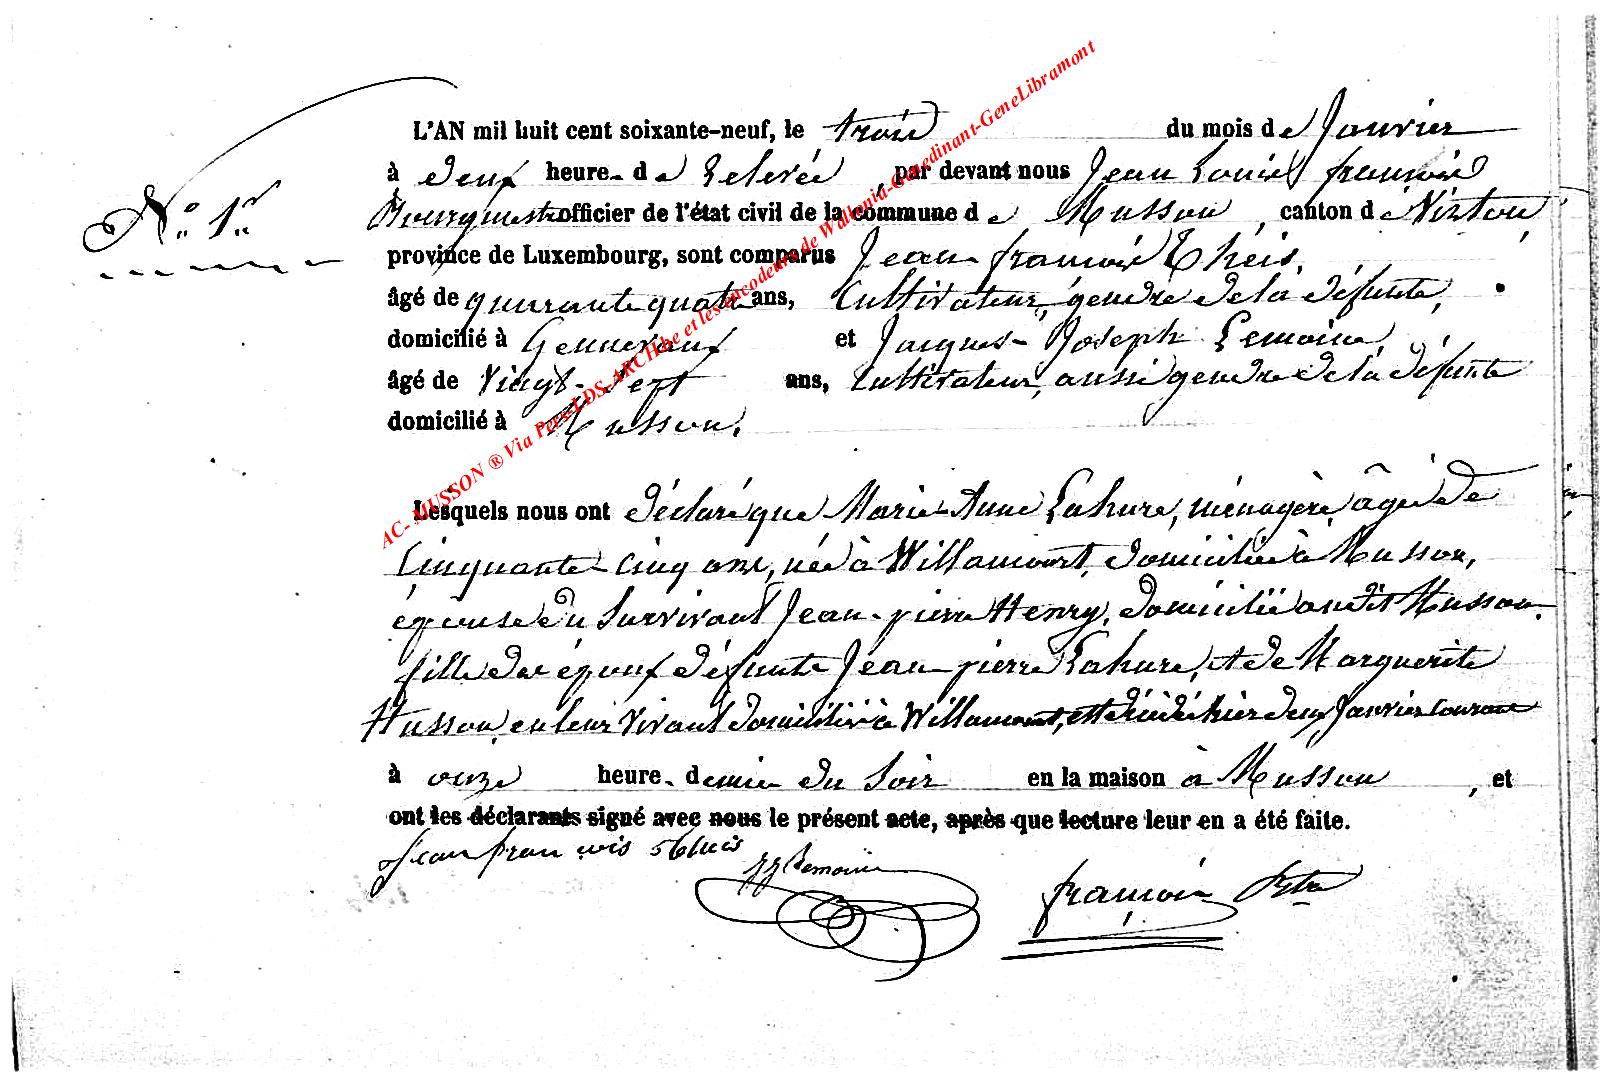 L'AN mil huit cent soixante-neuf, le trois du mois de Janvier
à deux heure- de relevée, par devant nous Jean Louis françois
N° 1er Bourgmestre officier de l'état civil de la commune de Musson, canton de Virton,
province de Luxembourg, sont comparus Jean françois Theis,
âgé de quarante quatre ans, Cultivateur, gendre de la défunte,
domicilié à Gennevaux et Jacques-Joseph Lemoine
âgé de Vingt-Sept ans, Cultivateur, aussi gendre de la défunte
domicilié à Musson.
AC-MUSSON ® Via Pers-LDS-ARCH.be et les encodeurs de Wallonia-Genedinant-GeneLibramont
Lesquels nous ont déclaré que Marie-Anne Lahure, ménagère, âgée de
Cinquante-Cinq ans, née à Willancourt, domiciliée à Musson,
épouse du Survivant Jean-pierre Henry, domicilié audit Musson,
fille des époux défunts Jean-pierre Lahure, et de Marguerite
Husson, en leur vivant domiciliés à Willancourt, est décédée hier deux Janvier courant
à onze heure- demie du Soir en la maison à Musson, et
ont les déclarants signé avec nous le présent acte, après que lecture leur en a été faite.
Jean fran cois
JJ Lemoine
françois